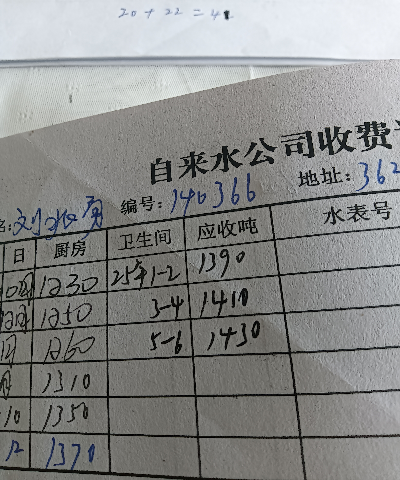 20 + 22 = 42
自来水公司收费
编号: 140366 地址: 362
日 厨房 卫生间 应收吨 水表号
1230 25年1-2 1390
1250 3-4 1410
1260 5-6 1430
1310
10 1350
12 1370